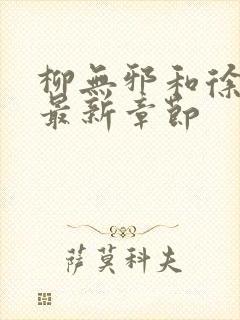 柳無邪和徐
最新章節
萨莫科夫